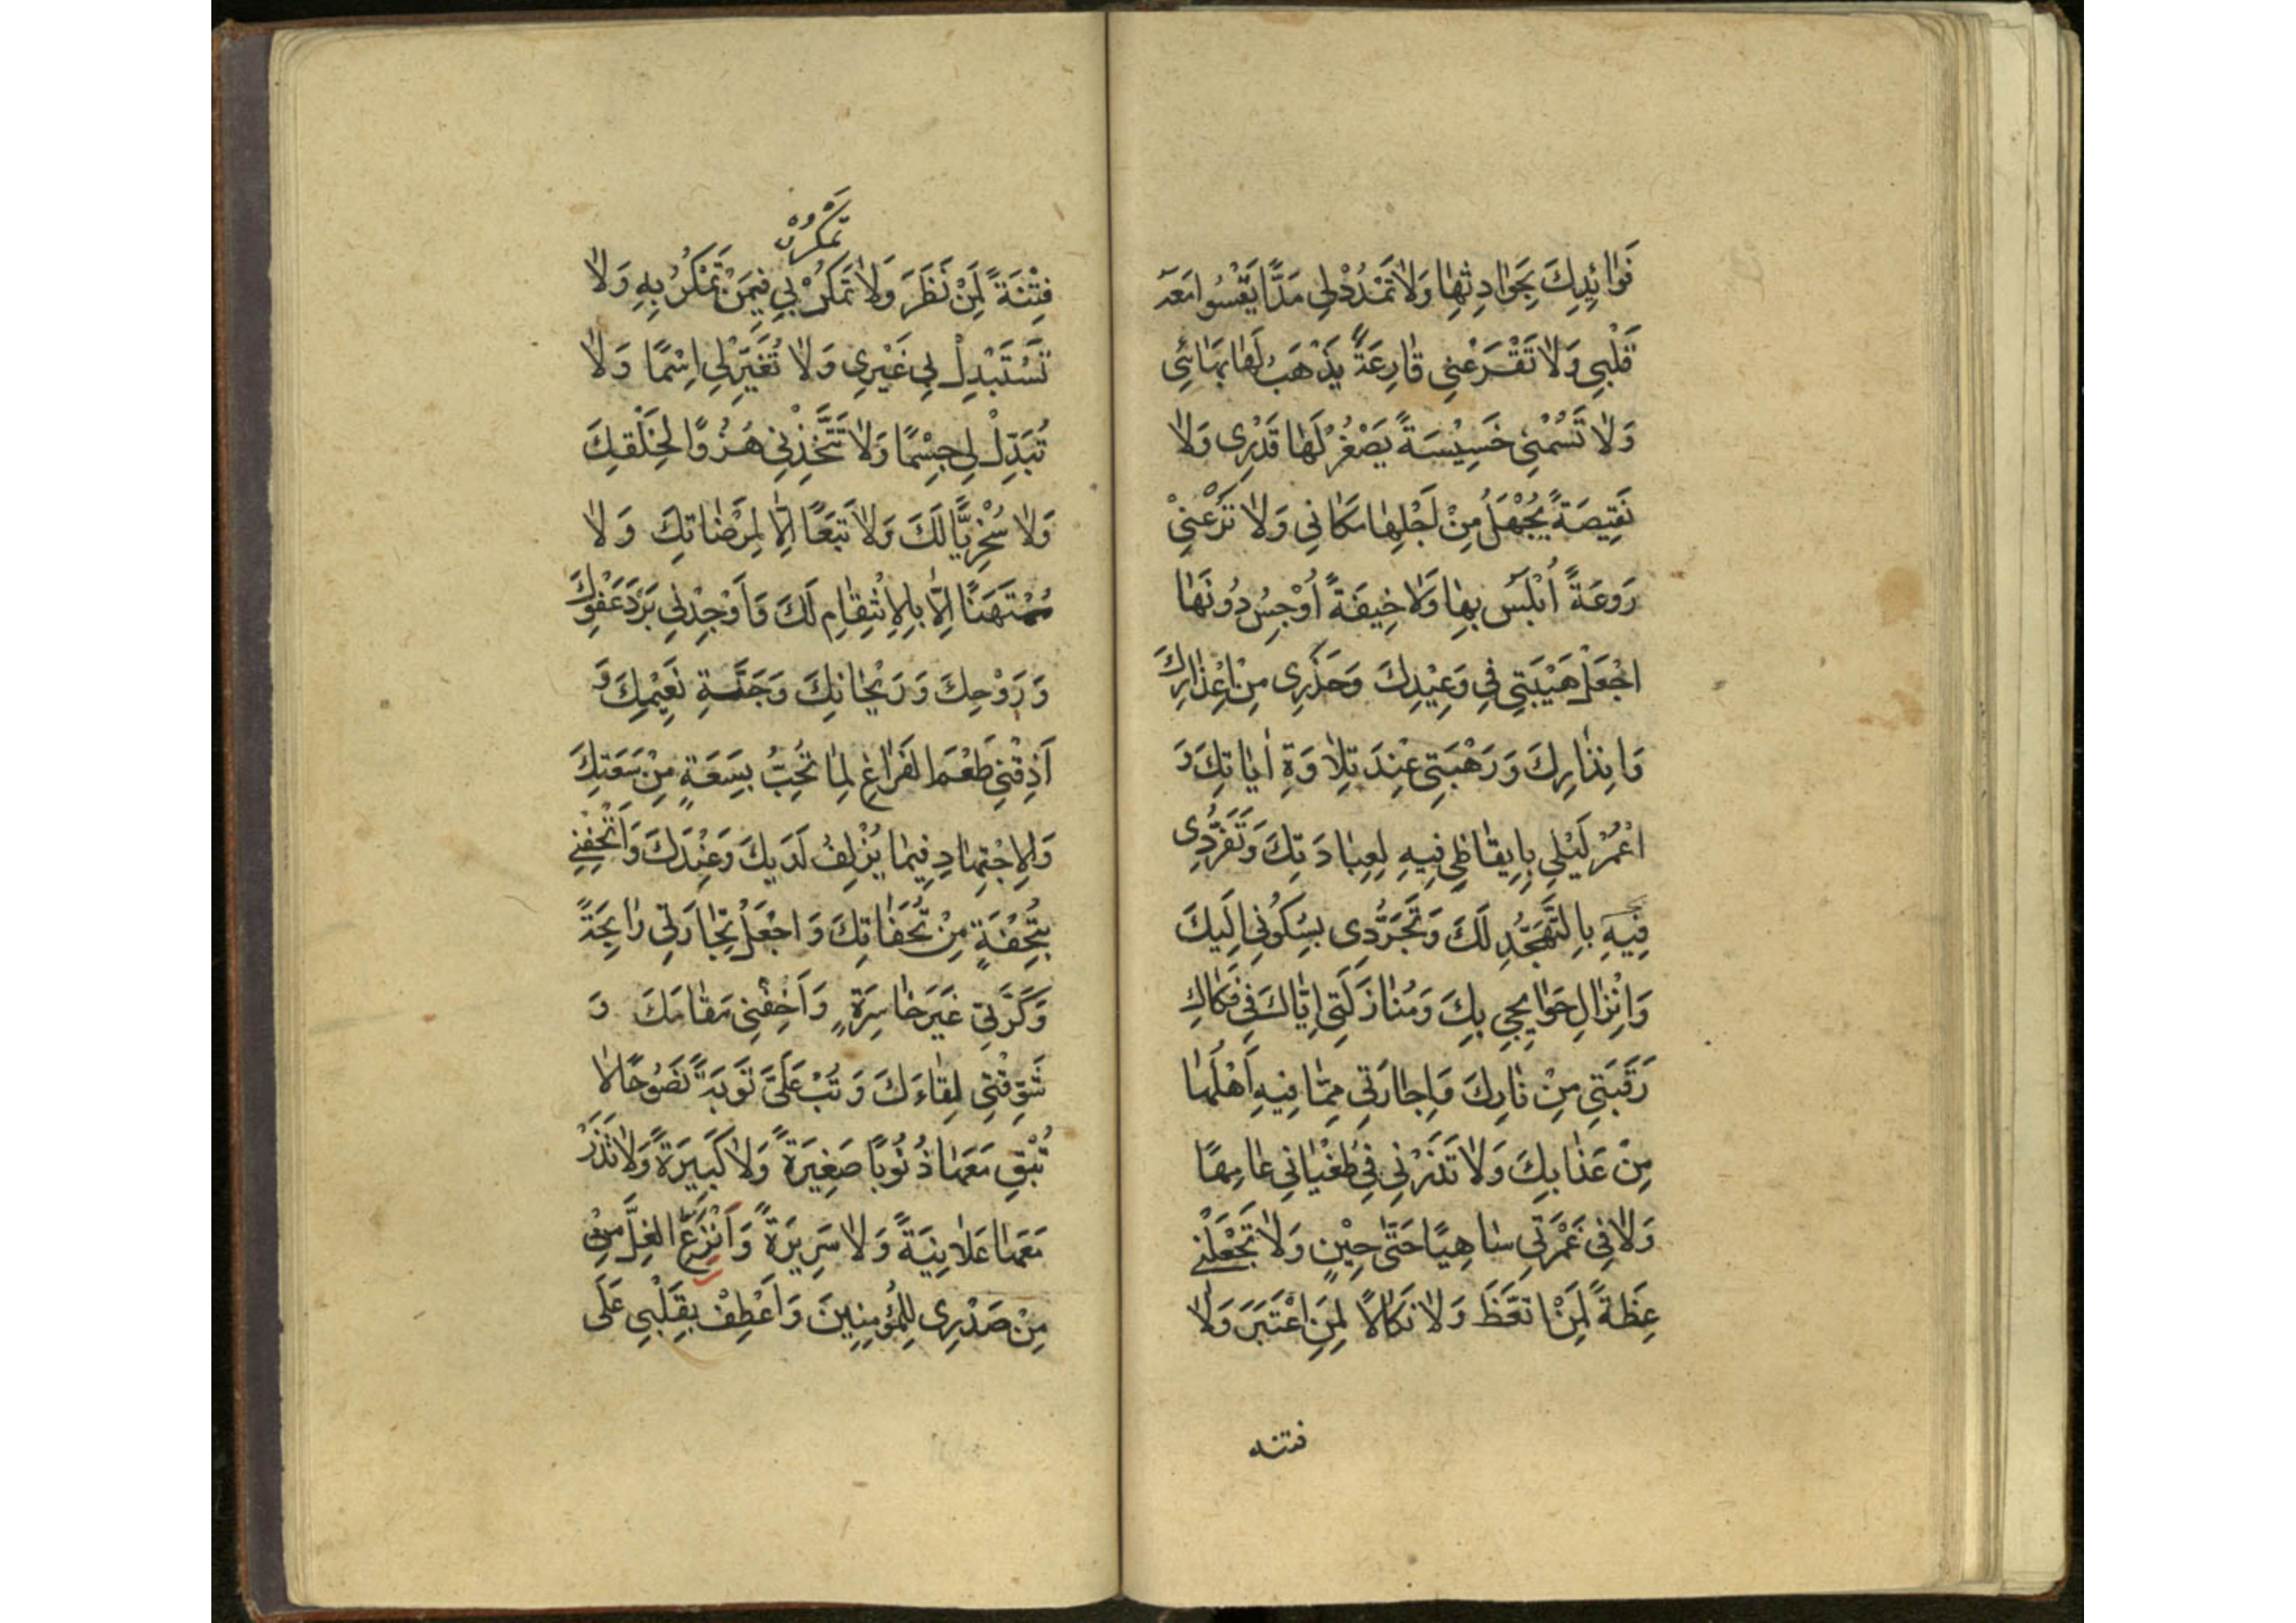 فَوٰائِدِكَ بِحَوٰادِثِهٰا وَلاٰ تَمْدُدْ لِي مَدًّا يَقْسُوا مَعَهُ
قَلْبِي وَلاٰ تَقْرَعْنِي قٰارِعَةً يَذْهَبُ لَهٰا بَهٰائِي
وَلاٰ تَسُمْنِي خَسِيْسَةً يَصْغُرُ لَهٰا قَدْرِي وَلاٰ
نَقِيصَةً يُجْهَلُ مِنْ لَجْلِهٰا مَكٰانِي وَلاٰ تَرُعْنِيْ
رَوعَةً اُبْلَسُ بِهٰا وَلاٰ خِيفَةً اُوْجِسُ دُونَهٰا
اجْعَلْ هَيْبَتِي فِي وَعِيْدِكَ وَحَذَرِي مِنْ اِعْذٰارِكَ
وَاِنْذٰارِكَ وَرَهْبَتِي عِنْدَ تِلاٰوَةِ اٰيٰاتِكَ وَ
اعْمُرْ لَيْلِي بِاِيقٰاظِي فِيهِ لِعِبٰادَتِكَ وَتَفَرُّدِي
فِيهِ بِالتَّهَجُّدِ لَكَ وَتَجَرُّدِي بِسُكُونِي اِلَيكَ
وَاِنْزٰالِ حَوٰايِجِي بِكَ وَمُنٰازَلَتِي اِيّٰاكَ فِي فَكٰاكِ
رَقَبَتِي مِنْ نٰارِكَ وَاِجٰارَتِي مِمّٰا فِيهِ اَهْلُهٰا
مِنْ عَذٰابِكَ وَلاٰ تَذَرْنِي فِي طُغْيٰانِي عٰامِهًا
وَلاٰ فِي غَمْرَتِي سٰاهِيًا حَتّٰى حِيْنٍ وَلاٰ تَجْعَلْنِي
عِظَةً لِمَنْ اتَّعَظَ وَلاٰ نَكٰالاً لِمَنِ اعْتَبَرَ وَلاٰ
فتنه
تَمْكُرْ
فِتْنَةً لِمَنْ نَظَرَ وَلاٰ تَمْكُرْ بِي فِيمَنْ تَمْكُرُ بِهِ وَلاٰ
تَسْتَبْدِلْ بِي غَيْرِي وَلاٰ تُغَيِّرْ لِي اِسْمًا وَلاٰ
تُبَدِّلْ لِي جِسْمًا وَلاٰ تَتَّخِذْنِي هُزُوًا لِخَلْقِكَ
وَلاٰ سُخْرِيًّا لَكَ وَلاٰ تَبَعًا اِلاّٰ لِمَرْضٰاتِكَ وَلاٰ
مُمْتَهَنًا اِلاّٰ بِالاِنْتِقٰامِ لَكَ وَاَوْجِدْنِي بَرْدَ عَفْوِكَ
وَرَوْحِكَ وَرَيْحٰانِكَ وَجَنَّةِ نَعِيْمِكَ وَ
اَذِقْنِي طَعْمَ الفَرٰاغِ لِمٰا تُحِبُّ بِسَعَةٍ مِنْ سَعَتِكَ
وَالاِجْتِهٰادِ فِيمٰا يُزْلِفُ لَدَيكَ وَعِنْدَكَ وَاَتْحِفْنِي
بِتُحْفَةٍ مِنْ تُحَفٰاتِكَ وَاجْعَلْ تِجٰارَتِي رٰابِحَةً
وَكَرَّتِي غَيرَ خٰاسِرَةٍ وَاَخِفْنِي مَقٰامَكَ وَ
شَوِّقْنِي لِقٰاءَكَ وَتُبْ عَلَيَّ تَوبَةً نَصُوحًا لاٰ
تُبْقِ مَعَهٰا ذُنُوبًا صَغِيرَةً وَلاٰ كَبِيرَةً وَلاٰ تَذَرْ
مَعَهٰا عَلاٰنِيَةً وَلاٰ سَرِيرَةً وَانْزِعَ الغِلَّ مِنْ
مِنْ صَدْرِي لِلْمُؤْمِنِينَ وَاَعْطِفْ بِقَلْبِي عَلَى